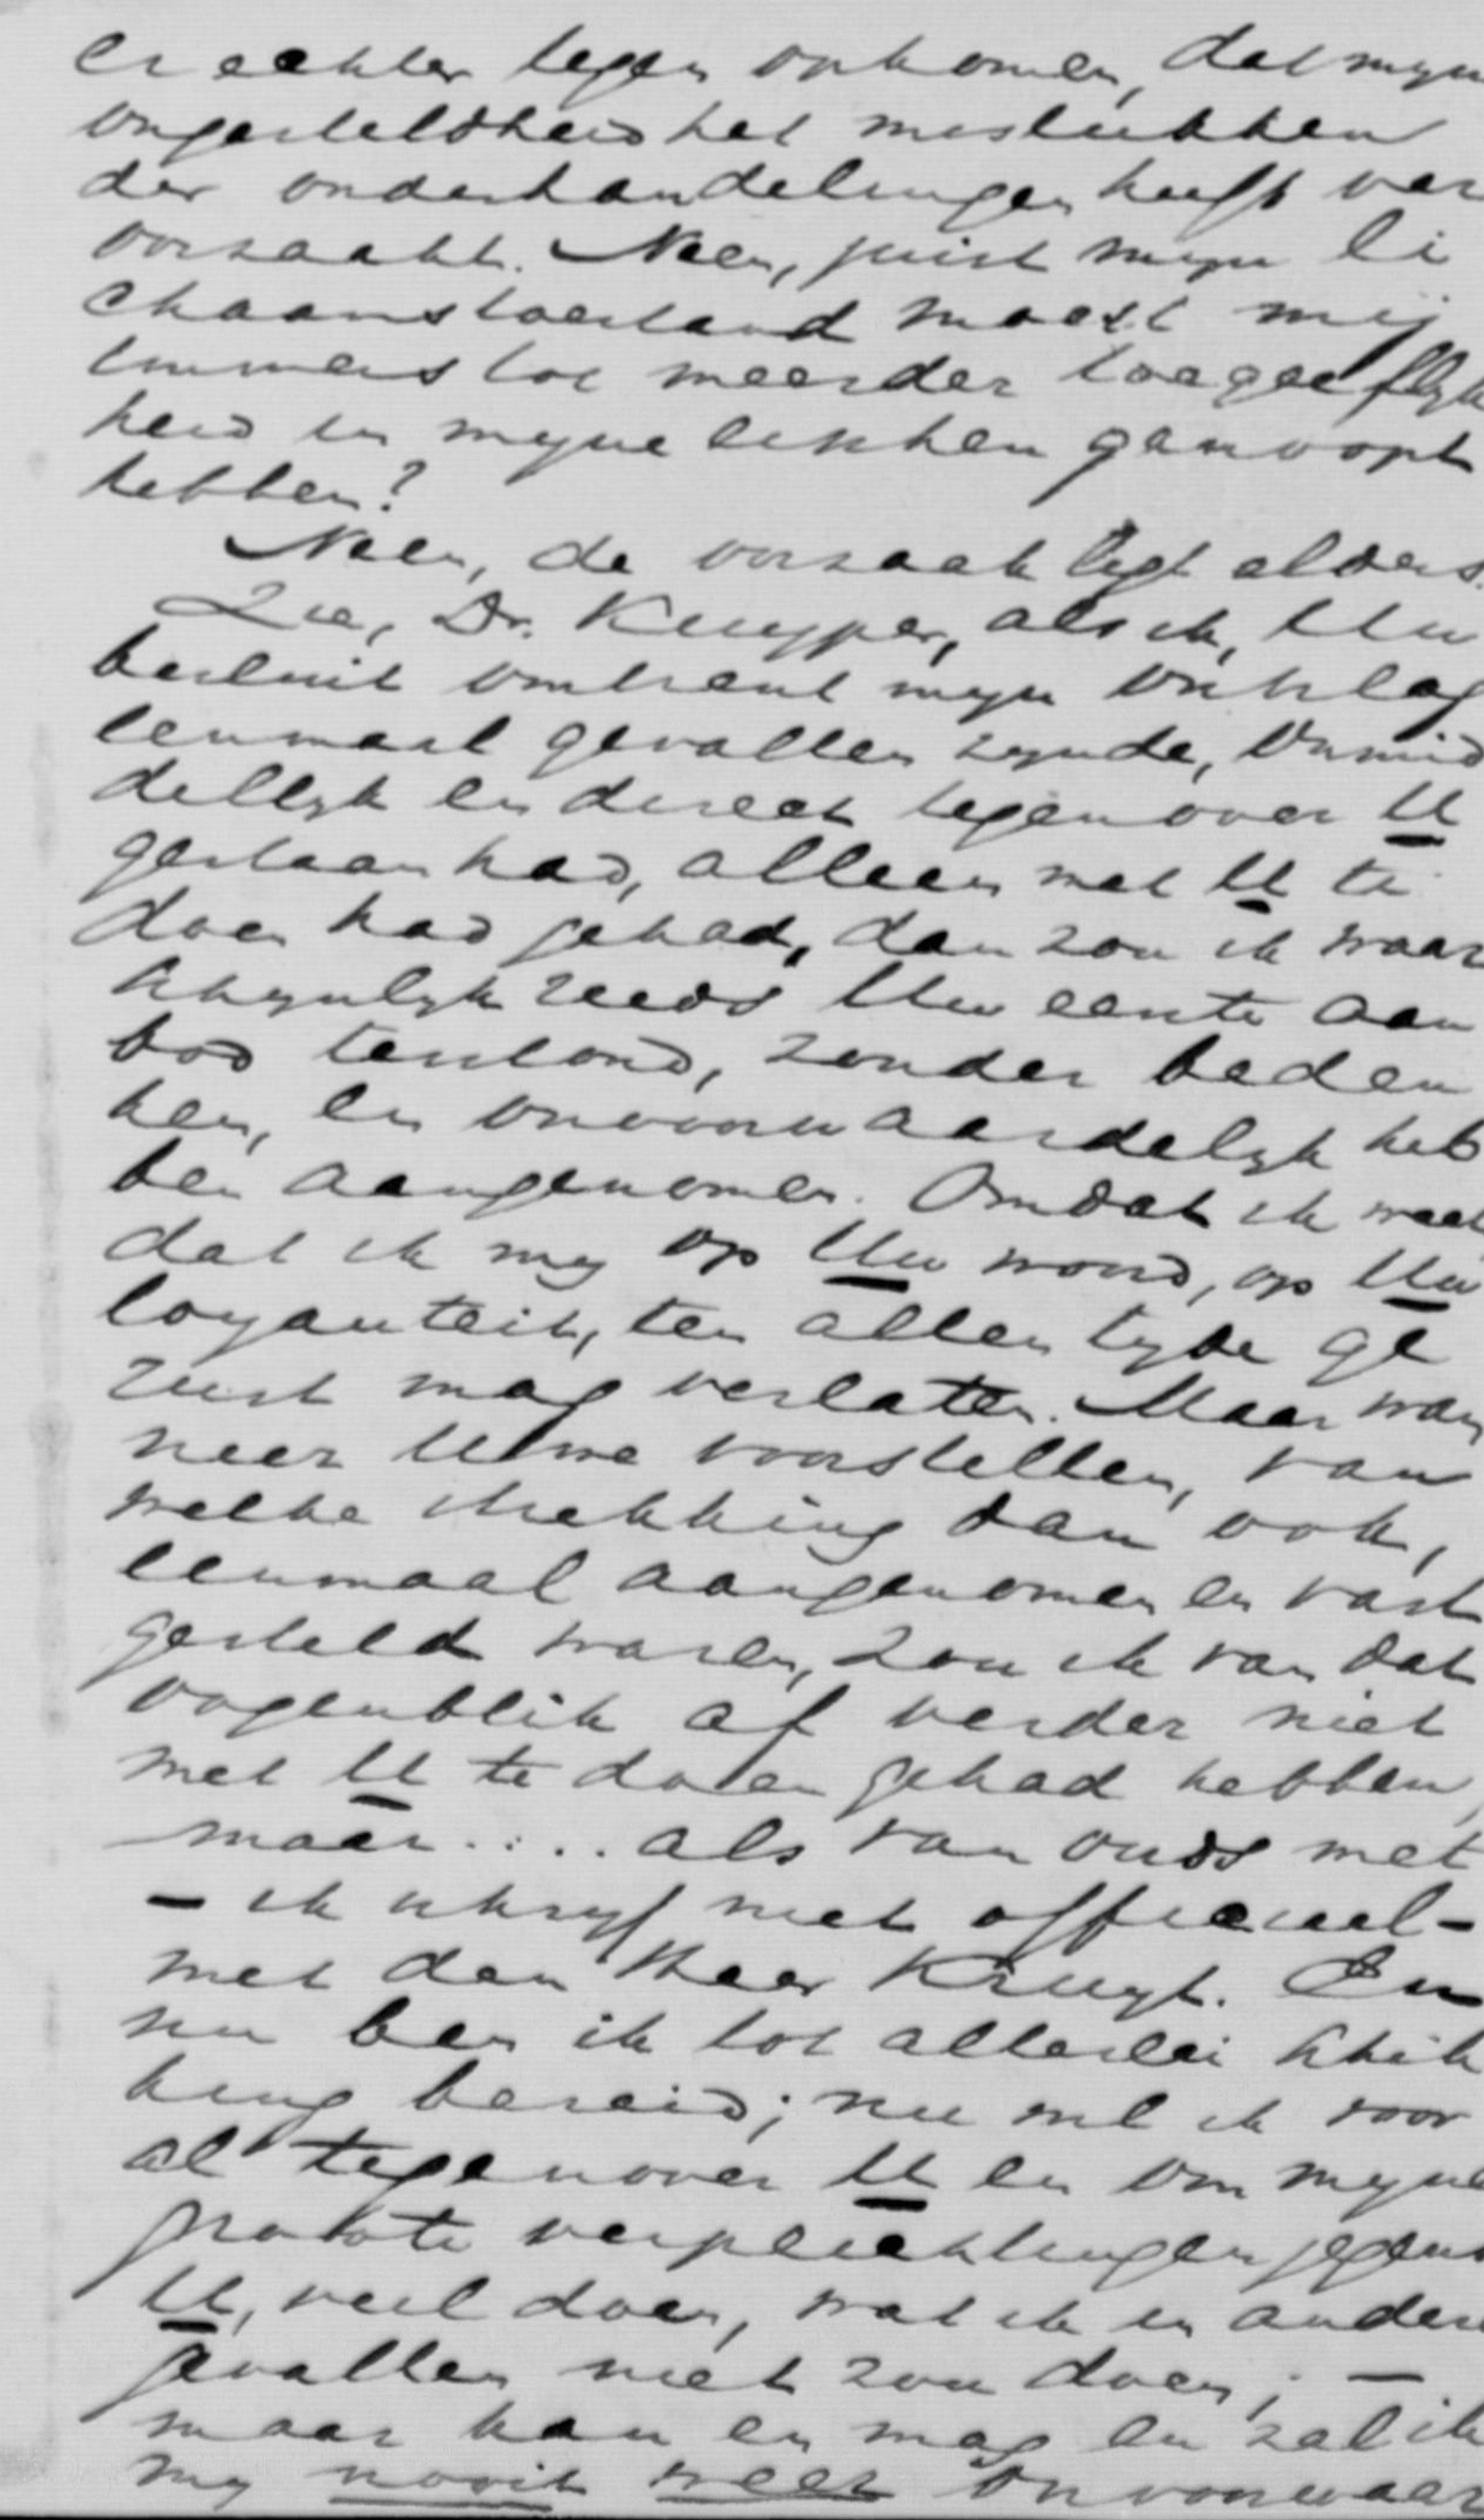 er echter tegen opkomen, dat mijn
ongesteldheid het mislukken
der onderhandelingen heeft ver
oorzaakt. Neen, juist mijn li
chaamstoestand moest mij
immers tot meerder toegeeflijk
heid in mijne eischen genoopt
hebben?
Neen, de oorzaak ligt elders.
Zie, Dr. Kuyper, als ik, Uw
besluit omtrent mijn ontslag
eenmaal gevallen zijnde, onmid
dellijk en direct tegenover U
gestaan had, alleen met U te
doen had gehad, dan zou ik waar
schijnlijk reeds Uw eerste aan
bod terstond, zonder beden
ken, en onvoorwaardelijk heb
ben aangenomen. Omdat ik weet
dat ik mij op Uw woord, op Uw
loyauteit, ten allen tijde ge
rust mag verlaten. Maar wan
neer Uwe voorstellen, van
welke strekking dan ook,
eenmaal aangenomen en vast
gesteld waren, zou ik van dat
oogenblik af verder niet
met U te doen gehad hebben,
maar.... als van ouds met
- ik schrijf niet officieel -
met den Heer Kruyt. En
nu ben ik tot allerlei schik
king bereid; nu wil ik voor
al tegenover U en om mijne
groote verplichtingen jegens
U, veel doen, wat ik in andere
gevallen niet zou doen; -
maar kan en mag en zal ik
mij nooit weer onvoorwaar